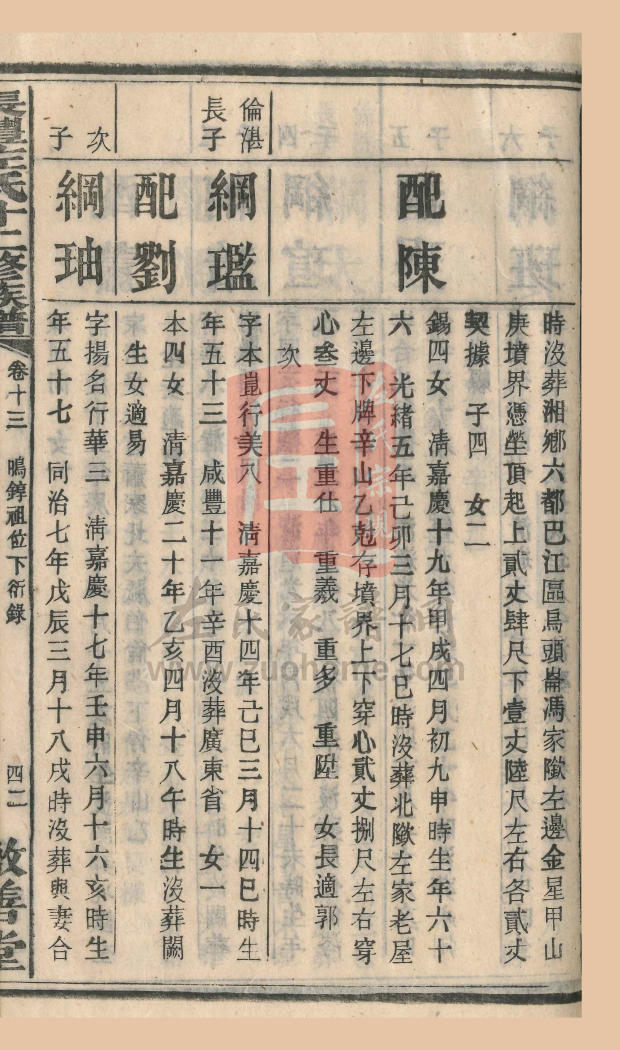 時沒葬湘鄉六都巴江區烏頭崙馮家歟左邊金星甲山
庚墳界憑塋頂起上貳丈肆尺下壹丈陸尺左右各貳丈
契據 子四 女二
配陳
錫四女 淸嘉慶十九年甲戌四月初九申時生年六十
六 光緖五年己卯三月十七巳時沒葬北歟左家老屋
左邊下牌辛山乙兢存墳界上下穿心貳丈捌尺左右穿
心叁丈 生重仕 重羲 重多 重陞 女長適郭
次
倫湛
長子
綱瑥
字本崑行美八 淸嘉慶十四年己巳三月十四巳時生
年五十三 咸豐十一年辛酉沒葬廣東省 女一
配劉
本四女 淸嘉慶二十年乙亥四月十八午時生沒葬闕
生女適易
次
子
綱㘥
字揚名行華三 淸嘉慶十七年壬申六月十六亥時生
年五十七 同治七年戊辰三月十八戌時沒葬與妻合
左氏十二修族譜 卷十三 鳴錞祖位下衍錄 四二 敬善堂
左氏家譜網
www.zuohome.com